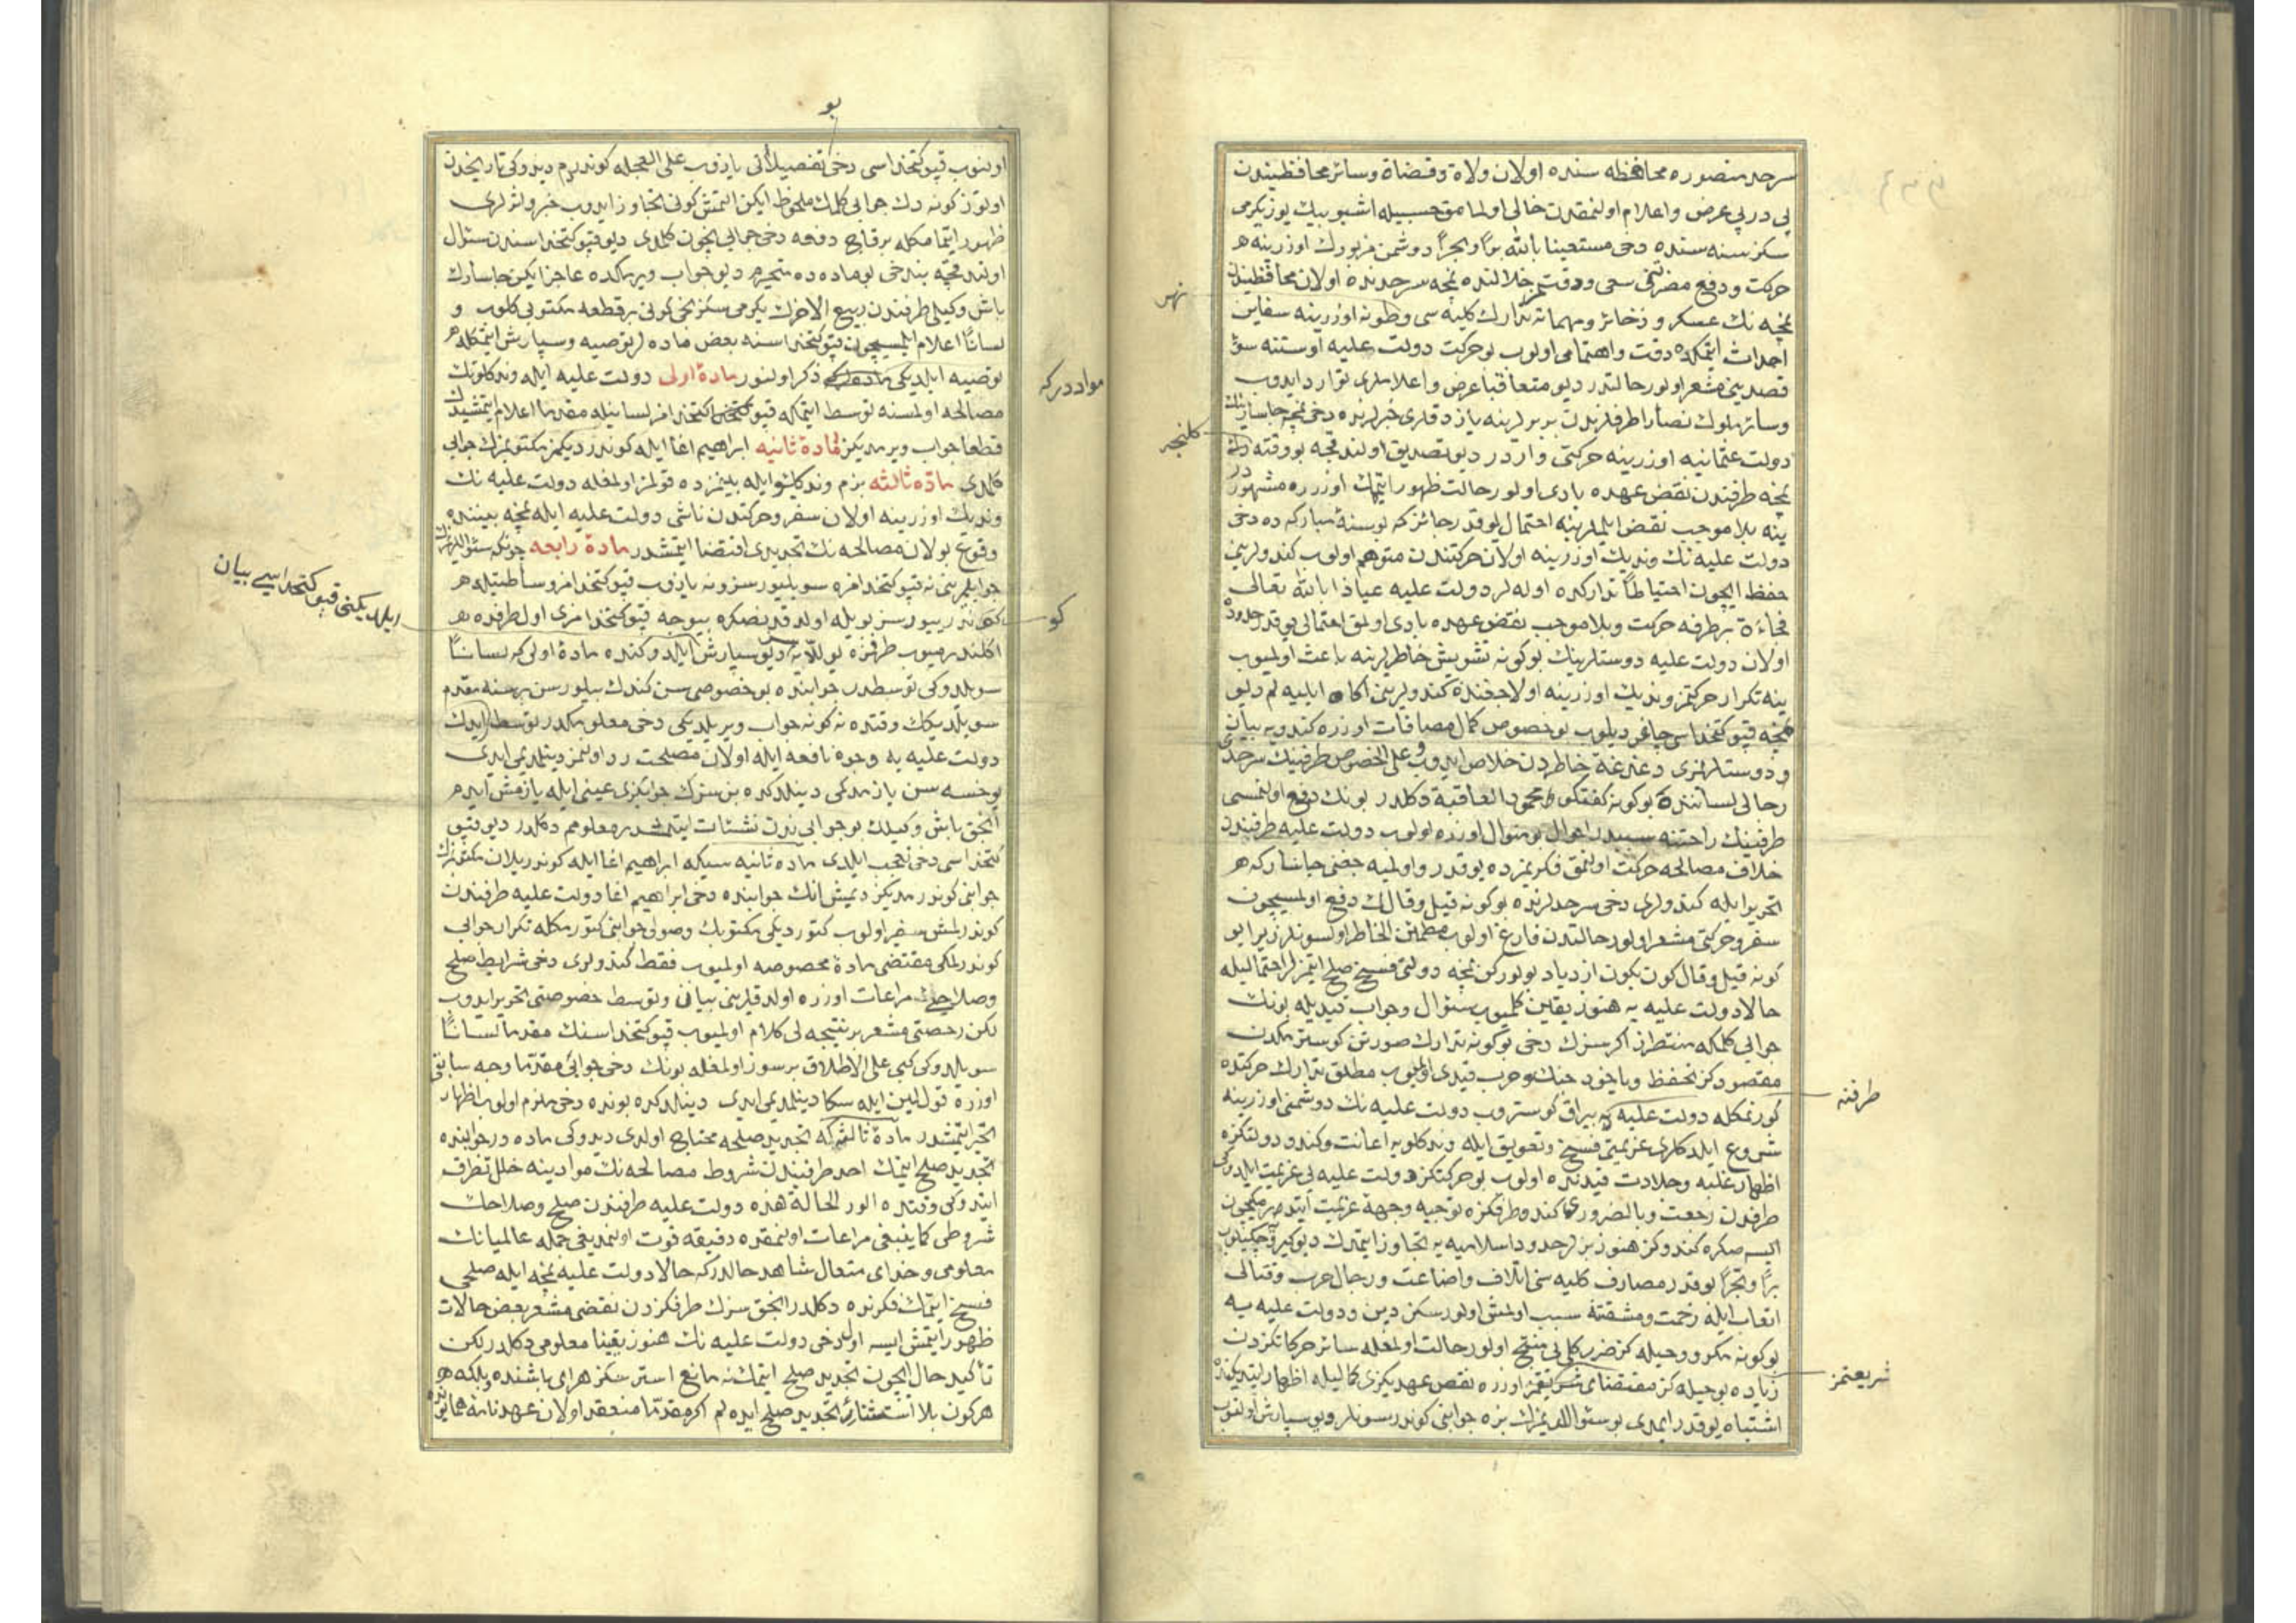 سرحد منصوره محافظه سنده اولان ولاة وقضاة وسائر محافظيندن
پی در پی عرض واعلام اولنمقدن خالی اولمامق حسبيله اشبو بيك يوز يكرمی
سكز سنه سنده دخی مستعينا بالله برًا وبحرًا دوشمن مزبورك اوزرينه
حركت ودفع مضرتنی سعی ودقت خلالنده نمچه سرحدنده اولان محافظيندن
نمچه نك عسكر وذخائر ومهماته تدارك كليه سی وطونه اوزرينه سفاين
احداث ايتمكده دقت واهتمامی اولوب بو حركت دولت عليه اوستنه سوق
قصدينی مشعر اولور حالتدر ديو متعاقبا عرض واعلاملری توارد ايدوب
وسائر ملوك نصارا طرفلرندن بربرلرينه يازدقلری خبرلرده دخی نمچه چاسارينك
دولت عثمانيه اوزرينه حركتی واردر ديو تصديق اولندقچه بو وقته دك
نمچه طرفندن نقض عهده بادی اولور حالت ظهور ايتمك اوزره مشهور
ينه بلا موجب نقض ايلملرينه احتمال يوقدر جائزكه بو سنۀ مباركه ده دخی
دولت عليه نك ونديك اوزرينه اولان حركتندن متوهم اولوب كندولرينی
حفظ ايچون احتياطاً تداركده اوله لر دولت عليه عياذا بالله تعالی
فجاءة بر طرفه حركت وبلا موجب نقض عهده بادی اولمق احتمالی يوقدر
اولان دولت عليه دوستلرينك بو كونه تشويش خاطرلرينه باعث اولميوب
ينه تكرار حركتمز ونديك اوزرينه اولاجغندن كندولرينی آكاه ايليه لم ديو
نمچه قپو كتخداسی چاغرديلوب بو خصوص كمال مصافات اوزره كندويه بيان
ودوستلرمزی دغدغۀ خاطردن خلاص ايدوب وعلی الخصوص طرفينك سرحد
رجالی لسانندن بو كونه كفتكو محمود العاقبة دكلدر بونك دفع اولنمسی
طرفينك راحتنه سببدر احوال بو منوال اوزره اولوب دولت عليه طرفندن
خلاف مصالحه حركت اولنمق فكريمزده يوقدر
تحرير ايله كندولری دخی سرحدلرنده بو كونه قيل وقالك دفع اولمسيچون
سفر وحركتی مشعر اولور حالتدن فارغ اولوب مطمئن الخاطر اولسونلر زيرا بو
كونه قيل وقال كون بكون ازدياد بولوركن نمچه دولتی فسخ صلح ايتمزلر احتماليله
حالا دولت عليه يه هنوز يقين كلميوب سئوال وجواب قيديله بونك
جوابی كلمكه منتظرز اكر سزك دخی بو كونه تدارك صورتن كوسترمكدن
مقصودكز تحفظ وياخود جنك وحرب قيدی اولميوب مطلق تدارك حركتده
كورنمكله دولت عليه يه يراق كوستروب دولت عليه نك دوشمنی اوزرينه
شروع ايلدكلری عزيمتی فسخ وتعويق ايله ونديكلويه اعانت وكندو دولتكزه
اظهار غلبه وجلادت قيدنده اولوب بو حركتكز دولت عليه بی عزيمت ايلدوكی
طرفدن رجعت وبالضروری كندو طرفكزه توجيه وجهۀ عزيمت ايتدرمكيچون
ايسه صكره كندوكز هنوز بزلر حدود اسلاميه يه تجاوز ايتمدك ديو
برًا وبحرًا بو قدر مصارف كليه سنی اتلاف واضاعت ورجال حرب وقتالی
اتعاب ايله زحمت ومشقته سبب اولمش اولورسكز دين ودولت عليه يه
بو كونه مكر وحيله كز ضرر كلی بی منتج اولور حالت اولمغله سائر حركاتكزدن
زياده بو حيله كز مقتضای اوزره نقض عهديكزی كماليله اظهار ايتديكنده
اشتباه يوقدر ايمدی بو سئواللريمزك بزه جوابنی كوندرسونلر ديو سپارش اولنوب
نهر
كلنجه
طرفنه
شريعتمز
بو
اولنوب قپو كتخداسی دخی تفصيلاتی يازوب علی العجله كوندرم ديدوكی تاريخدن
اوتوز كونه دك جوابی كلمك ملحوظ ايكن التمش كونی تجاوز ايدوب خبر واثری
ظهور ايتمامكله بر قاچ دفعه دخی جوابی ايچون كلمدی ديو قپو كتخداسندن سئوال
اولندقچه بندخی بو ماده ده متحيرم ديو جواب ويرمكده عاجز ايكن چاسارك
باش وكيلی طرفندن ربيع الاخرك يكرمی سكزنجی كونی بر قطعه مكتوبی كلوب و
لسانًا اعلام ايلمسيچون قپو كتخداسنه بعض ماده لر توصيه وسپارش ايتمكله
توصيه ايلديكی ذكر اولنور مادۀ اولی دولت عليه ايله ونديكلونك
مصالحه اولمسنه توسط ايتمكله قپو كتخدامز لسانيله مقدما اعلام ايتمشيدك
قطعا جواب ويرمديكز مادۀ ثانيه ابراهيم اغا ايله كوندرديكمز مكتوبمزك جوابی
كلمدی مادۀ ثالثه بزم ونديكلو ايله بينمزده قولمز اولمغله دولت عليه نك
ونديك اوزرينه اولان سفر وحركتدن ناشی دولت عليه ايله نمچه بيننده
وقوع بولان مصالحه نك تجديدی اقتضا ايتمشدر مادۀ رابعه چونكه سئواللريمزك
جوابلرينی نه قپو كتخدامزه سويليورسز ونه يازوب قپو كتخدامز وساطتيله
كوندرييورسز بويله اولدقدنصكره بيوجه قپو كتخدامزی اول طرفده
اكلندرميوب طرفمزه يوللايه سز ديو سپارش ايلدوكنده مادۀ اولی كه لسانًا
سويلدوكی توسطدر جوابنده بو خصوصی سن كندك بيلورسن بر سنه مقدم
سويلديكك وقتده نه كونه جواب ويريلديكی دخی معلومكدر توسط ايدك
دولت عليه يه وجوه نافعه ايله اولان مصلحت رد اولنمز دينلمديمی ايدی
يوخسه سن يازمدكمی دينلدكده بن سزك جوابكزی عينی ايله يازمش ايدم
انجق باش وكيلك بو جوابی ندن نشئات ايتمشدر معلومم دكلدر ديو قپو
كتخداسی دخی تعجب ايلدی ماده ثانيه سيكه ابراهيم اغا ايله كوندريلان مكتوبمزك
جوابنی كوندرمديكز ديمش انك جوابنده دخی ابراهيم اغا دولت عليه طرفندن
كوندرلمش سفير اولوب كتورديكی مكتوبك وصولی جوابنی كتورمكله تكرار جوابی
كوندرلمكی مقتضی مادۀ مخصوصه اولميوب فقط كندولری دخی شرايط صلح
وصلاحه مراعات اوزره اولدقلرينی بيان وتوسط خصوصنی تحرير ايدوب
لكن رخصتی مشعر بر نتيجه لی كلام اولميوب قپو كتخداسنك مقدما لسانًا
سويلدوكی كبی علی الاطلاق بر سوز اولمغله بونك دخی جوابی مقدما وجه سابق
اوزره قول لين ايله سكا دينلمديمی ايدی دينلدكده بونده دخی ملزم اولوب اظهار
تحير ايتمشدر مادۀ ثالثه كه تجديد صلحه محتاج اولدی ديدوكی ماده در جوابنده
تجديد صلح ايتمك احد طرفيندن شروط مصالحه نك موادينه خلل تطرق
ايتدوكی وقتده الور الحالة هذه دولت عليه طرفندن صلح وصلاحك
شروطی كما ينبغی مراعات اولنمقده دقيقه فوت اولنمديغی جمله عالميانك
معلومی وخدای متعال شاهد حالدركه حالا دولت عليه نمچه ايله صلحی
فسخ ايتمك فكرنده دكلدر انجق سزك طرفكزدن نقضی مشعر بعض حالات
ظهور ايتمش ايسه اولدخی دولت عليه نك هنوز يقينا معلومی دكلدر لكن
تأكيد حال ايچون تجديد صلح ايتمك نه مانع استرسكز هر ای باشنده وبلكه
هر كون بلا استثنا تجديد صلح ايده لم اكر مقدما منعقد اولان عهدنامه همايون
مواددركه
كو
ايلديكنی قپو كتخداسی بيان